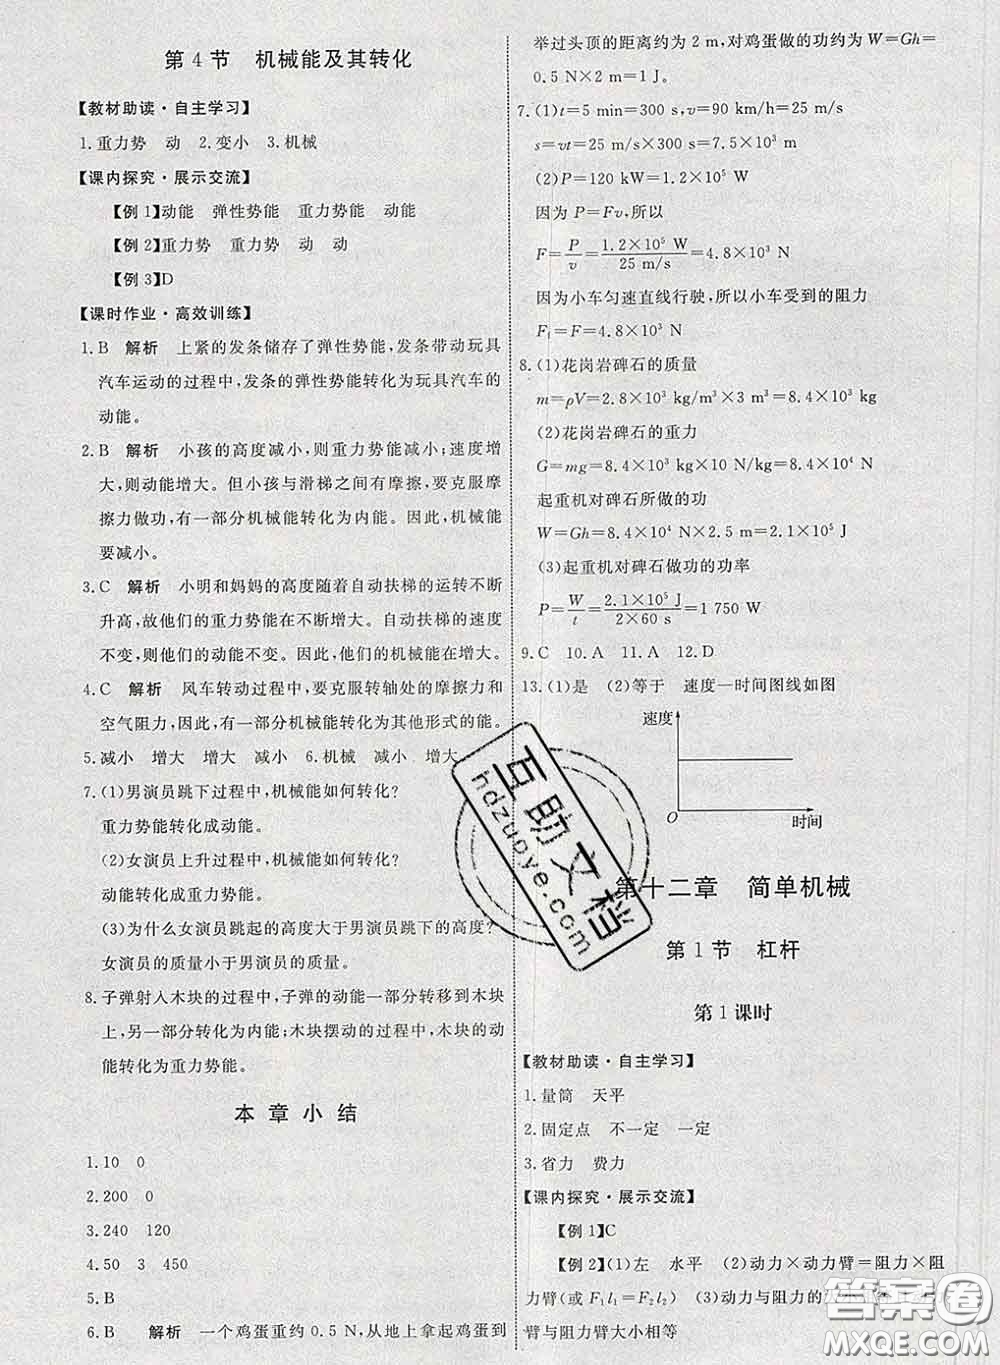 第4节 机械能及其转化
【教材助读·自主学习】
1.重力势 动 2.变小 3.机械
【课内探究·展示交流】
【例1】动能 弹性势能 重力势能 动能
【例2】重力势 重力势 动 动
【例3】D
【课时作业·高效训练】
1.B 解析 上紧的发条储存了弹性势能,发条带动玩具
汽车运动的过程中,发条的弹性势能转化为玩具汽车的
动能。
2.B 解析 小孩的高度减小,则重力势能减小;速度增
大,则动能增大。但小孩与滑梯之间有摩擦,要克服摩
擦力做功,有一部分机械能转化为内能。因此,机械能
要减小。
3.C 解析 小明和妈妈的高度随着自动扶梯的运转不断
升高,故他们的重力势能在不断增大。自动扶梯的速度
不变,则他们的动能不变。因此,他们的机械能在增大。
4.C 解析 风车转动过程中,要克服转轴处的摩擦力和
空气阻力,因此,有一部分机械能转化为其他形式的能。
5.减小 增大 增大 减小 6.机械 减小 增大
7.(1)男演员跳下过程中,机械能如何转化?
重力势能转化成动能。
(2)女演员上升过程中,机械能如何转化?
动能转化成重力势能。
(3)为什么女演员跳起的高度大于男演员跳下的高度?
女演员的质量小于男演员的质量。
8.子弹射入木块的过程中,子弹的动能一部分转移到木块
上,另一部分转化为内能;木块摆动的过程中,木块的动
能转化为重力势能。
本章小结
1.10 0
2.200 0
3.240 120
4.50 3 450
5.B
6.B 解析 一个鸡蛋重约0.5 N,从地上拿起鸡蛋到
举过头顶的距离约为2 m,对鸡蛋做的功约为W=Gh=
0.5 N×2 m=1 J。
7.(1)t=5 min=300 s,v=90 km/h=25 m/s
s=vt=25 m/s×300 s=7.5×10³ m
(2)P=120 kW=1.2×10⁵ W
因为P=Fv,所以
F=P/v=1.2×10⁵ W/25 m/s=4.8×10³ N
因为小车匀速直线行驶,所以小车受到的阻力
F_f=F=4.8×10³ N
8.(1)花岗岩碑石的质量
m=ρV=2.8×10³ kg/m³×3 m³=8.4×10³ kg
(2)花岗岩碑石的重力
G=mg=8.4×10³ kg×10 N/kg=8.4×10⁴ N
起重机对碑石所做的功
W=Gh=8.4×10⁴ N×2.5 m=2.1×10⁵ J
(3)起重机对碑石做功的功率
P=W/t=2.1×10⁵ J/2×60 s=1 750 W
9.C 10.A 11.A 12.D
13.(1)是 (2)等于 速度—时间图线如图
速度
O
时间
第十二章 简单机械
第1节 杠杆
第1课时
【教材助读·自主学习】
1.量筒 天平
2.固定点 不一定 一定
3.省力 费力
【课内探究·展示交流】
【例1】C
【例2】(1)左 水平 (2)动力×动力臂=阻力×阻
力臂(或F₁l₁=F₂l₂) (3)动力与阻力的
臂与阻力臂大小相等
互助文档
hdzuoye.com
答案圈
MXQE.COM